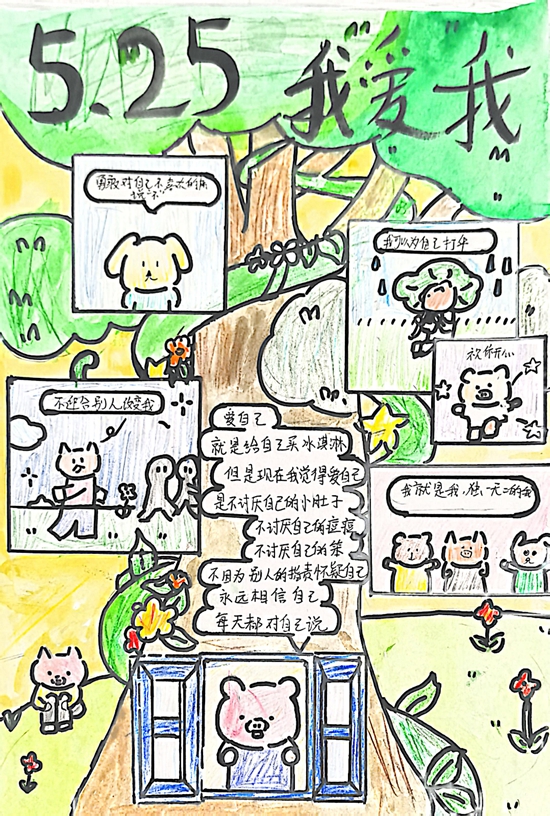 5.25 "我"爱"我"
勇敢对自己不喜欢的东西
说"不"
我可以为自己打伞
祝你开心
不迎合别人做我
我就是我,独一无二的我
爱自己
就是给自己买冰淇淋
但是现在我觉得爱自己
是不讨厌自己的小肚子
不讨厌自己的痘痘
不讨厌自己的笨
不因为别人的指责怀疑自己
永远相信自己
每天都对自己说